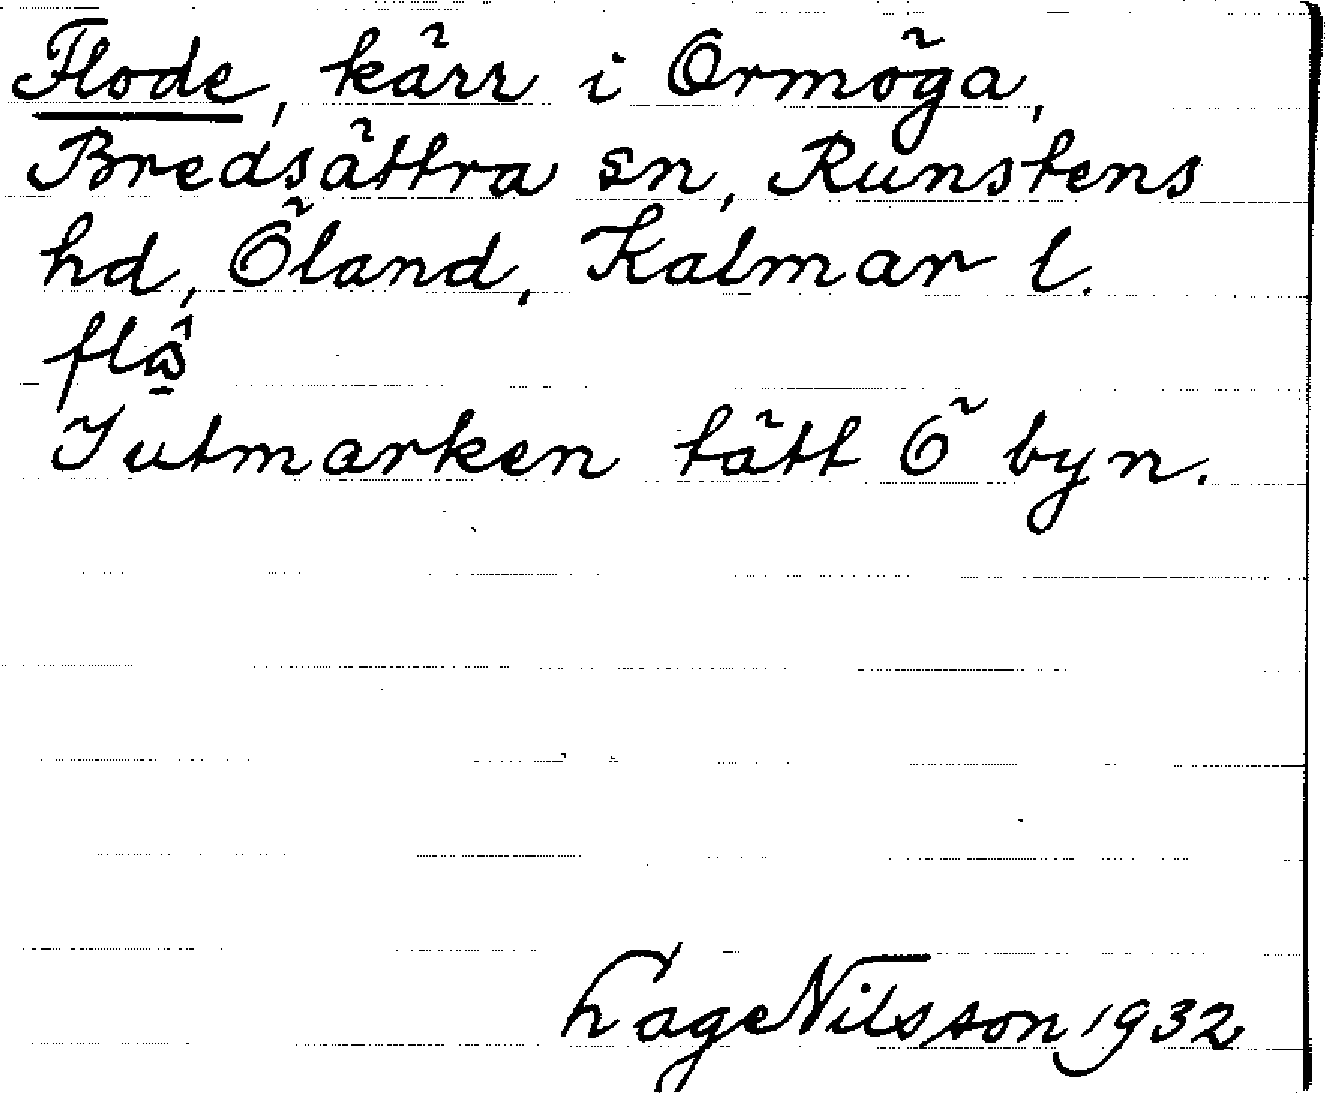 Flode, kärr i Ormöga,
Bredsättra sn, Runstens
hd, Öland, Kalmar l.
I utmarken tätt Ö byn.
Lage Nilsson 1932